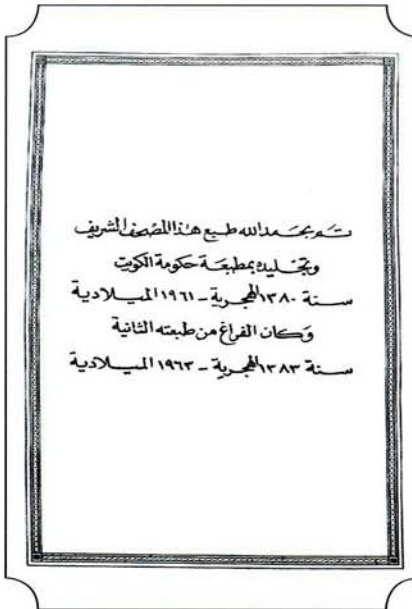 تم بحمد الله طبع هذا المصحف الشريف
وتجليده بمطبعة حكومة الكويت
سنة ١٣٨٠ الهجرية - ١٩٦١ الميلادية
وكان الفراغ من طبعته الثانية
سنة ١٣٨٣ الهجرية - ١٩٦٣ الميلادية